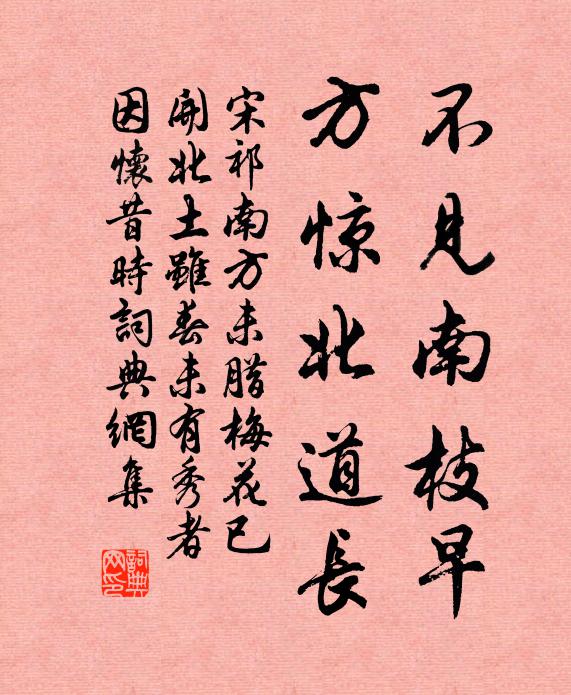 不見南枝早
方惊北道長
宋祁南方未腊梅花已
開北土雖春未有秀者
因懷昔時詞典網集
詞典
网印